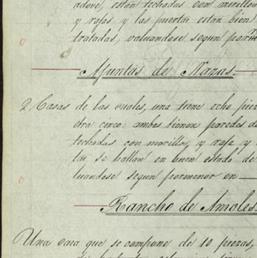 adove, estan techadas con morillos
y rajas, y las puertas están bien
tratadas, valuandose segun porme
Apuntas de Mazus.
2 Casas de las cuales, una tiene ocho piez
otra cinco: ambas tienen paredes de
techadas con morillos, y raja, y
tas se hallan en buen estado de
luandose segun pormenor en
Rancho de Amoles
Una casa que se compone de 10 piezas,